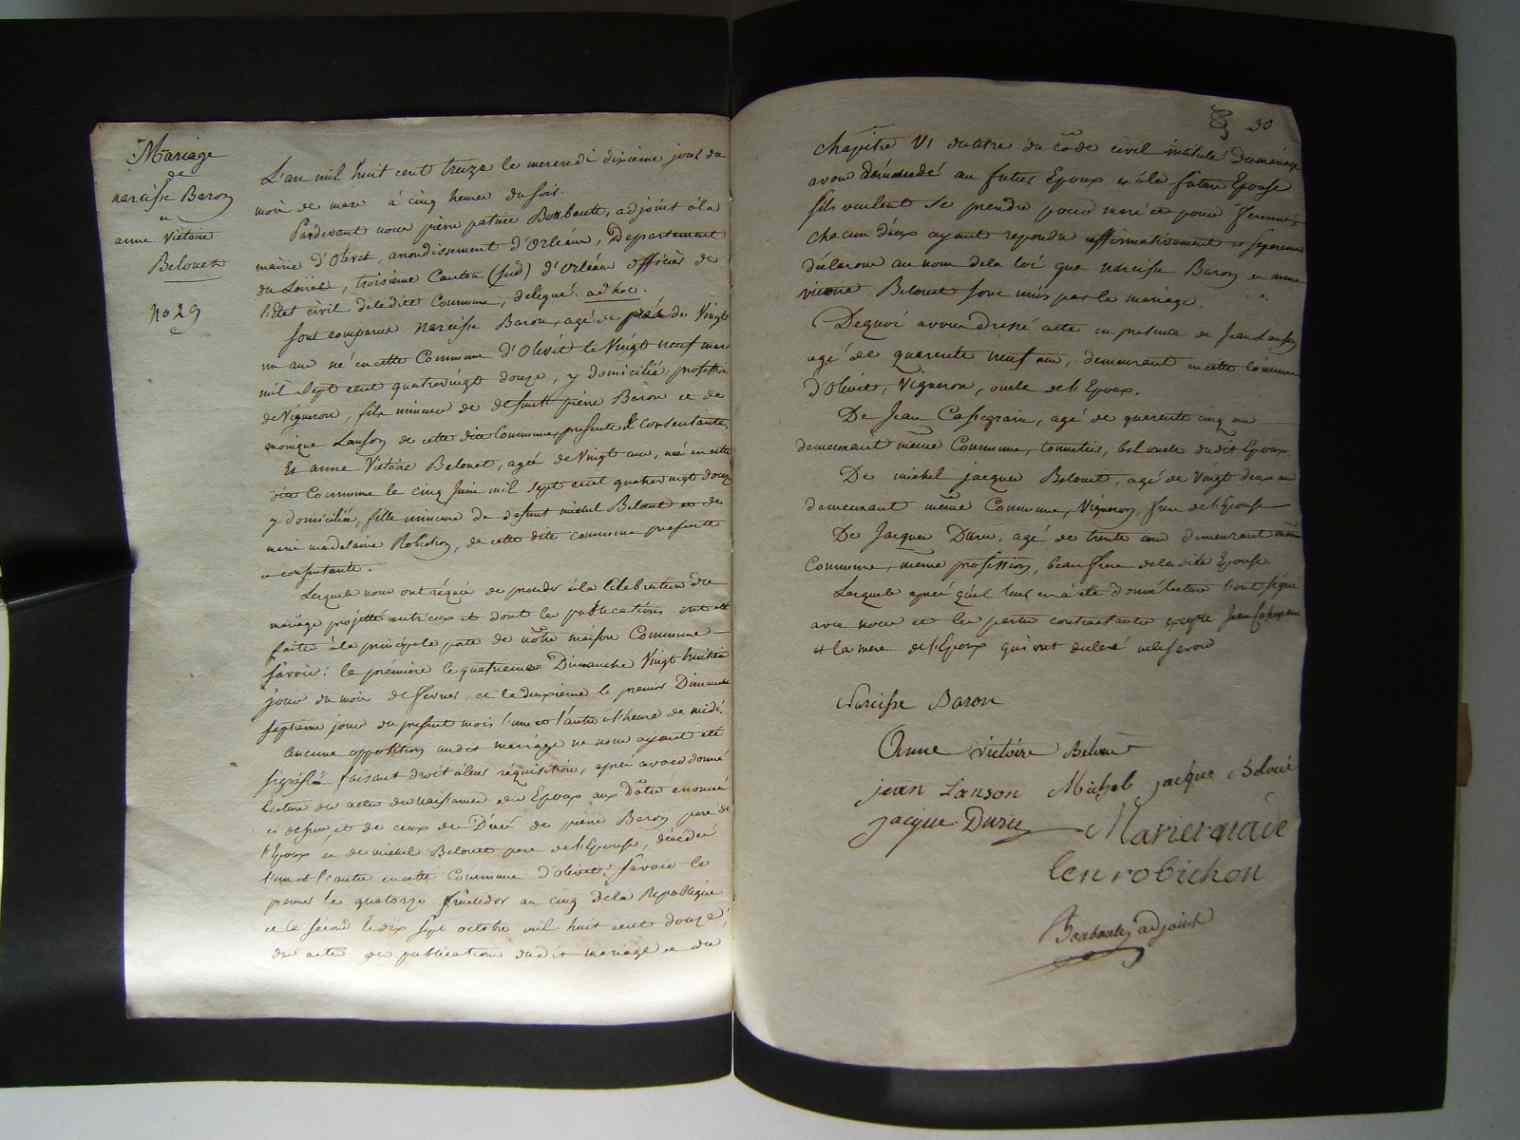 Mariage
de
narcisse Baron
et
anne Victoire
Belouet
No 29
L'an mil huit cent treize le mercredi dixieme jour du
mois de mars à cinq heures du soir.
Pardevant nous pierre patrice Boubault, adjoint à la
mairie d'Olivet, arrondissement d'Orléans, Departement
du Loiret, troisieme Canton (sud) d'Orléans officier de
l'Etat civil de ladite Commune, delegué ad hoc.
sont comparus narcisse Baron, agé de près de Vingt
un ans né en cette Commune d'Olivet le Vingt neuf mars
mil sept cent quatrevingt douze, y domicilié, profession
de Vigneron, fils mineur de defunt pierre Baron et de
monique Lanson de cette dite Commune, presente et consentante,
Et anne Victoire Belouet, agée de Vingt ans, née en cette
dite Commune le cinq Juin mil sept cent quatrevingt douze
y domiciliée, fille mineure de defunt michel Belouet et de
marie madelaine Robichon, de cette dite commune presente
et consentante.
Lesquels nous ont requis de proceder à la célébration du
mariage projetté entr'eux et dont les publications ont été
faites à la principale porte de notre maison Commune
savoir: la premiere le quatrieme Dimanche Vingt huitie
jour du mois de fevrier et la deuxieme le premier Dimanche
septieme jour du present mois l'une et l'autre à l'heure de midi.
Aucune opposition audit mariage ne nous ayant été
signifiée faisant droit à leur réquisition, après avoir donné
lecture des actes de naissance des Epoux aux dates enoncées
ci dessus, et de ceux de Décés de pierre Baron pere de
l'Epoux et de michel Belouet pere de l'Epouse, décédés
l'un et l'autre en cette Commune d'olivet: savoir le
premier le quatorze fructidor an cinq de la Republique
et le second le dix sept octobre mil huit cent douze,
des actes de publication dudit mariage et du
30
chapitre VI du titre du code civil intitulé du mariage
avons demandé au futur Epoux et à la future Epouse
s'ils veulent se prendre pour mari et pour femme
chacun d'eux ayant repondu affirmativement et separement
déclarons au nom de la loi que narcisse Baron et anne
victoire Belouet sont unis par le mariage.
Dequoi avons dressé acte en presence de Jean Lanson
agé de quarente neuf ans, demeurant en cette Commune
d'Olivet, Vigneron, oncle de l'Epoux.
De Jean Cassegrain, agé de quarente cinq ans
demeurant même Commune, tonnelier, bel oncle dudit Epoux.
De michel jacques Belouet, agé de Vingt deux ans
demeurant même Commune, Vigneron, frere de l'Epouse
De Jacques Duru, agé de trente ans demeurant même
Commune, même profession, beau frere de la dite Epouse
Lesquels après qu'il leur en a été donné lecture l'ont signé
avec nous et les parties contractantes excepté Jean Cassegrain
et la mere de l'Epoux qui ont déclaré ne le savoir
Narcisse Baron
Anne victoire Belouet
jean Lanson Michel jacque Beloué
jacque Duru Mariemade
len robichon
Boubault adjoint